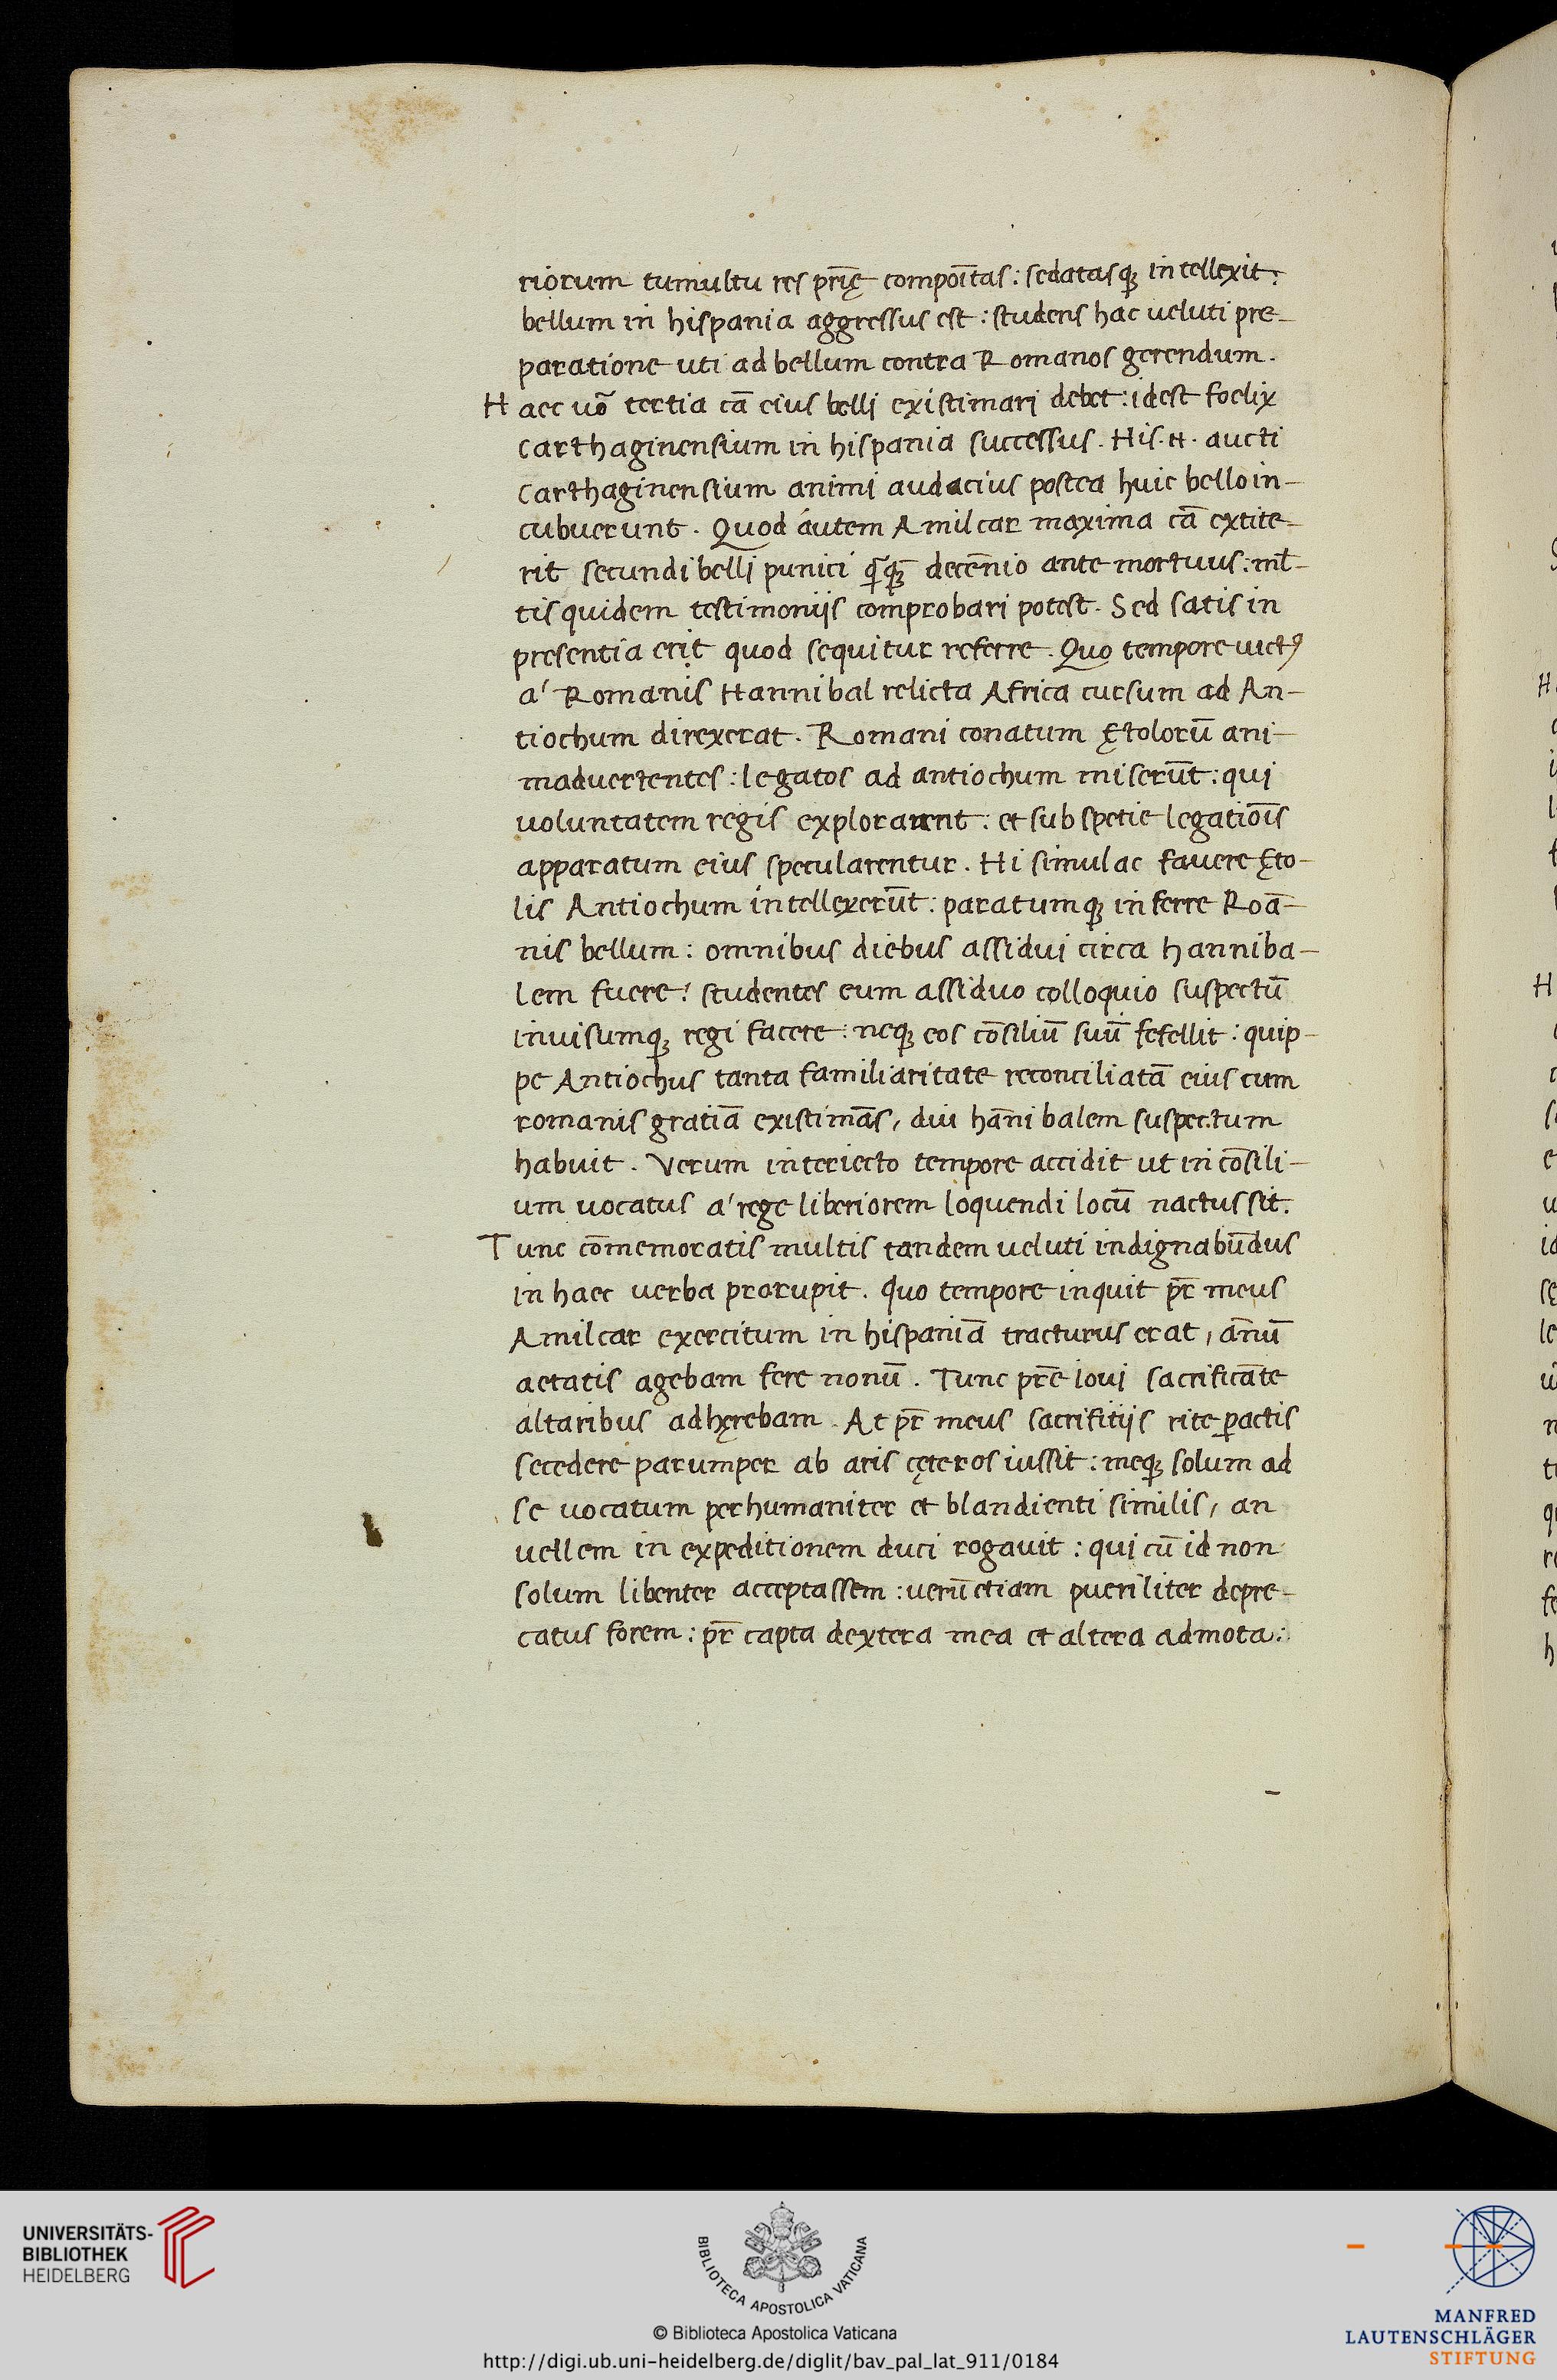 riorum tumultu res pr̄ię compoı̄tas : sedatasqꝫ intellexit :
bellum in hispania aggressus est : studens hac ueluti pre-
paratione uti ad bellum contra Romanos gerendum .
Haec uō tertia cā eius belli existimari debet : idest foelix
Carthaginensium in hispania successus . His . n . aucti
Carthaginensium animi audacius postea huic bello in-
cubuerunt . Quod áutem Amilcar maxima cā extite-
rit secundi belli punici decēnio ante mortuus : ml̄-
tis quidem testimoniis comprobari potest . Sed satis in
presentia erit quod sequitur referre . Quo tempore uictꝰ
a' Romanis Hannibal relicta Africa cursum ad An-
tiochum direxerat . Romani conatum Ętolorū ani-
maduertentes : legatos ad antiochum miserūt : qui
uoluntatem regis explorarent : et sub spetie legatiōis
apparatum eius specularentur . Hi simul ac fauere Ęto-
lis Antiochum intellexerūt : paratumqꝫ inferre Roā-
nis bellum : omnibus diebus assidui circa hanniba-
lem fuere : studentes eum assiduo colloquio suspectū
inuisumqꝫ regi facere : neqꝫ eos cōsiliū suū fefellit : quip-
pe Antiochus tanta familiaritate reconciliatā eius cum
romanis gratiā existimās , diu hāni balem suspectum
habuit . Verum interiecto tempore accidit ut in cōsili-
um uocatus a' rege liberiorem loquendi locū nactus sit .
Tunc cōmemoratis multis tandem ueluti indignabūdus
in haec uerba prorupit . Quo tempore inquit pr̄ meus
Amilcar exercitum in hispaniā tracturus erat , ānū
aetatis agebam fere nonū . Tunc pr̄e Ioui sacrificāte
altaribus adhęrebam . At pr̄ meus sacrifitiis rite ꝑactis
secedere parumper ab aris cęteros iussit : meqꝫ solum ad
se uocatum perhumaniter et blandienti similis , an
uellem in expeditionem duci rogauit : qui cū id non
solum libenter acceptassem : uerū etiam pueriliter depre-
catus forem : pr̄ capta dextera mea et altera admota :
UNIVERSITÄTS-
BIBLIOTHEK
HEIDELBERG
BIBLIOTECA APOSTOLICA VATICANA
© Biblioteca Apostolica Vaticana
http://digi.ub.uni-heidelberg.de/diglit/bav_pal_lat_911/0184
MANFRED
LAUTENSCHLÄGER
STIFTUNG